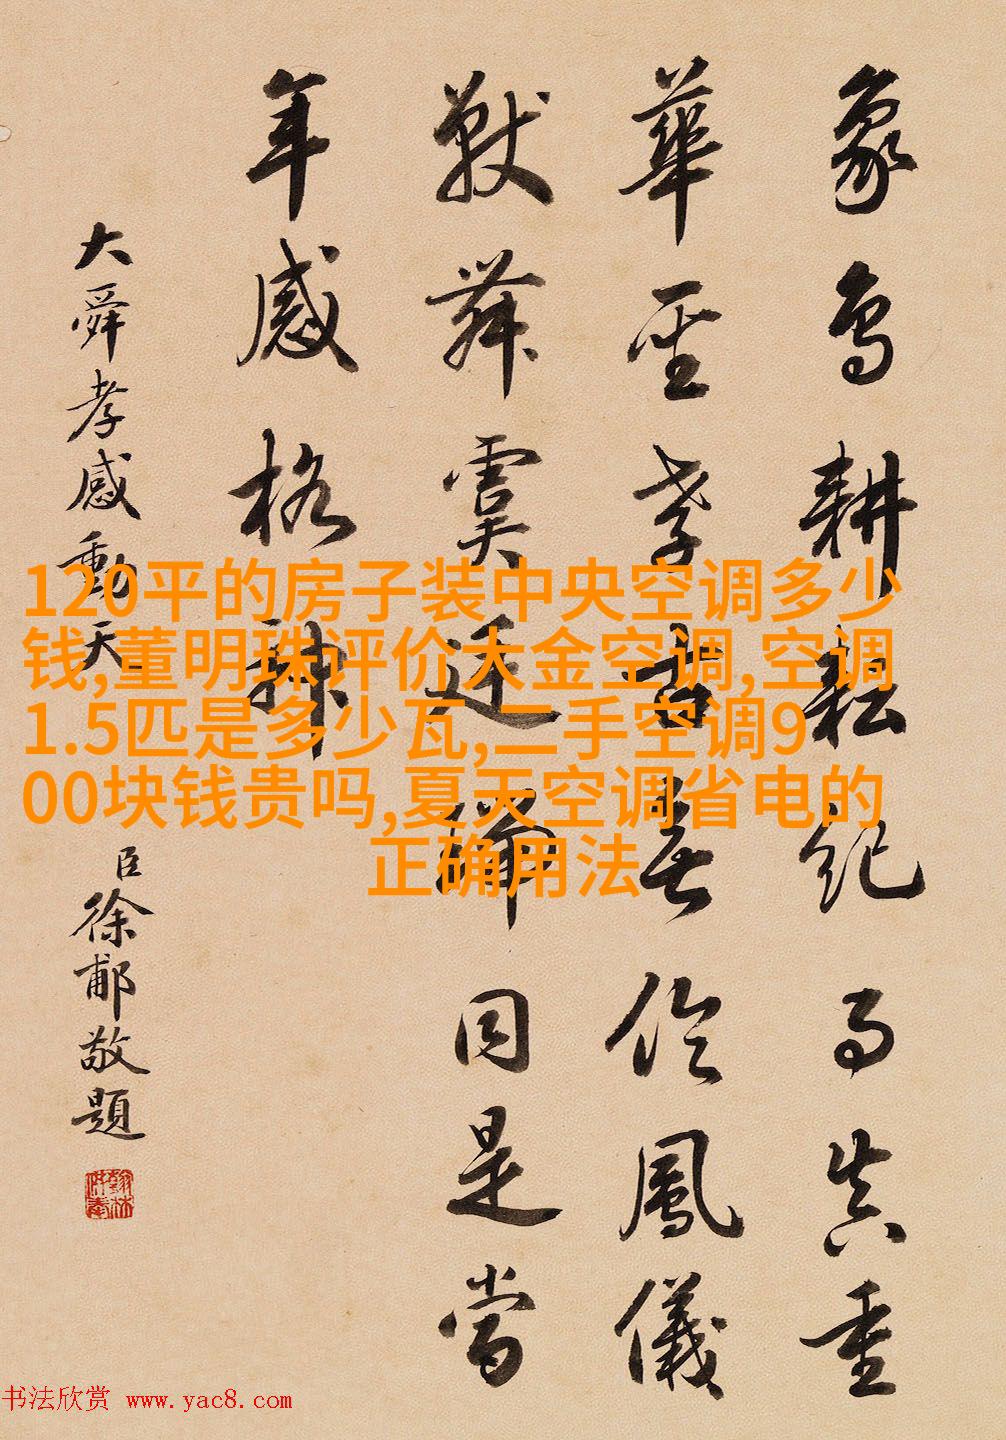 象鳥耕耘紀事真重
華至孝古無倫鳳儀
獸舞虞廷瑞同是當
年感格神
大舜孝感動天
臣徐郙敬題
120平的房子装中央空调多少
钱,董明珠评价大金空调,空调
1.5匹是多少瓦,二手空调9
00块钱贵吗,夏天空调省电的
正确用法
书法欣赏 www.yac8.com